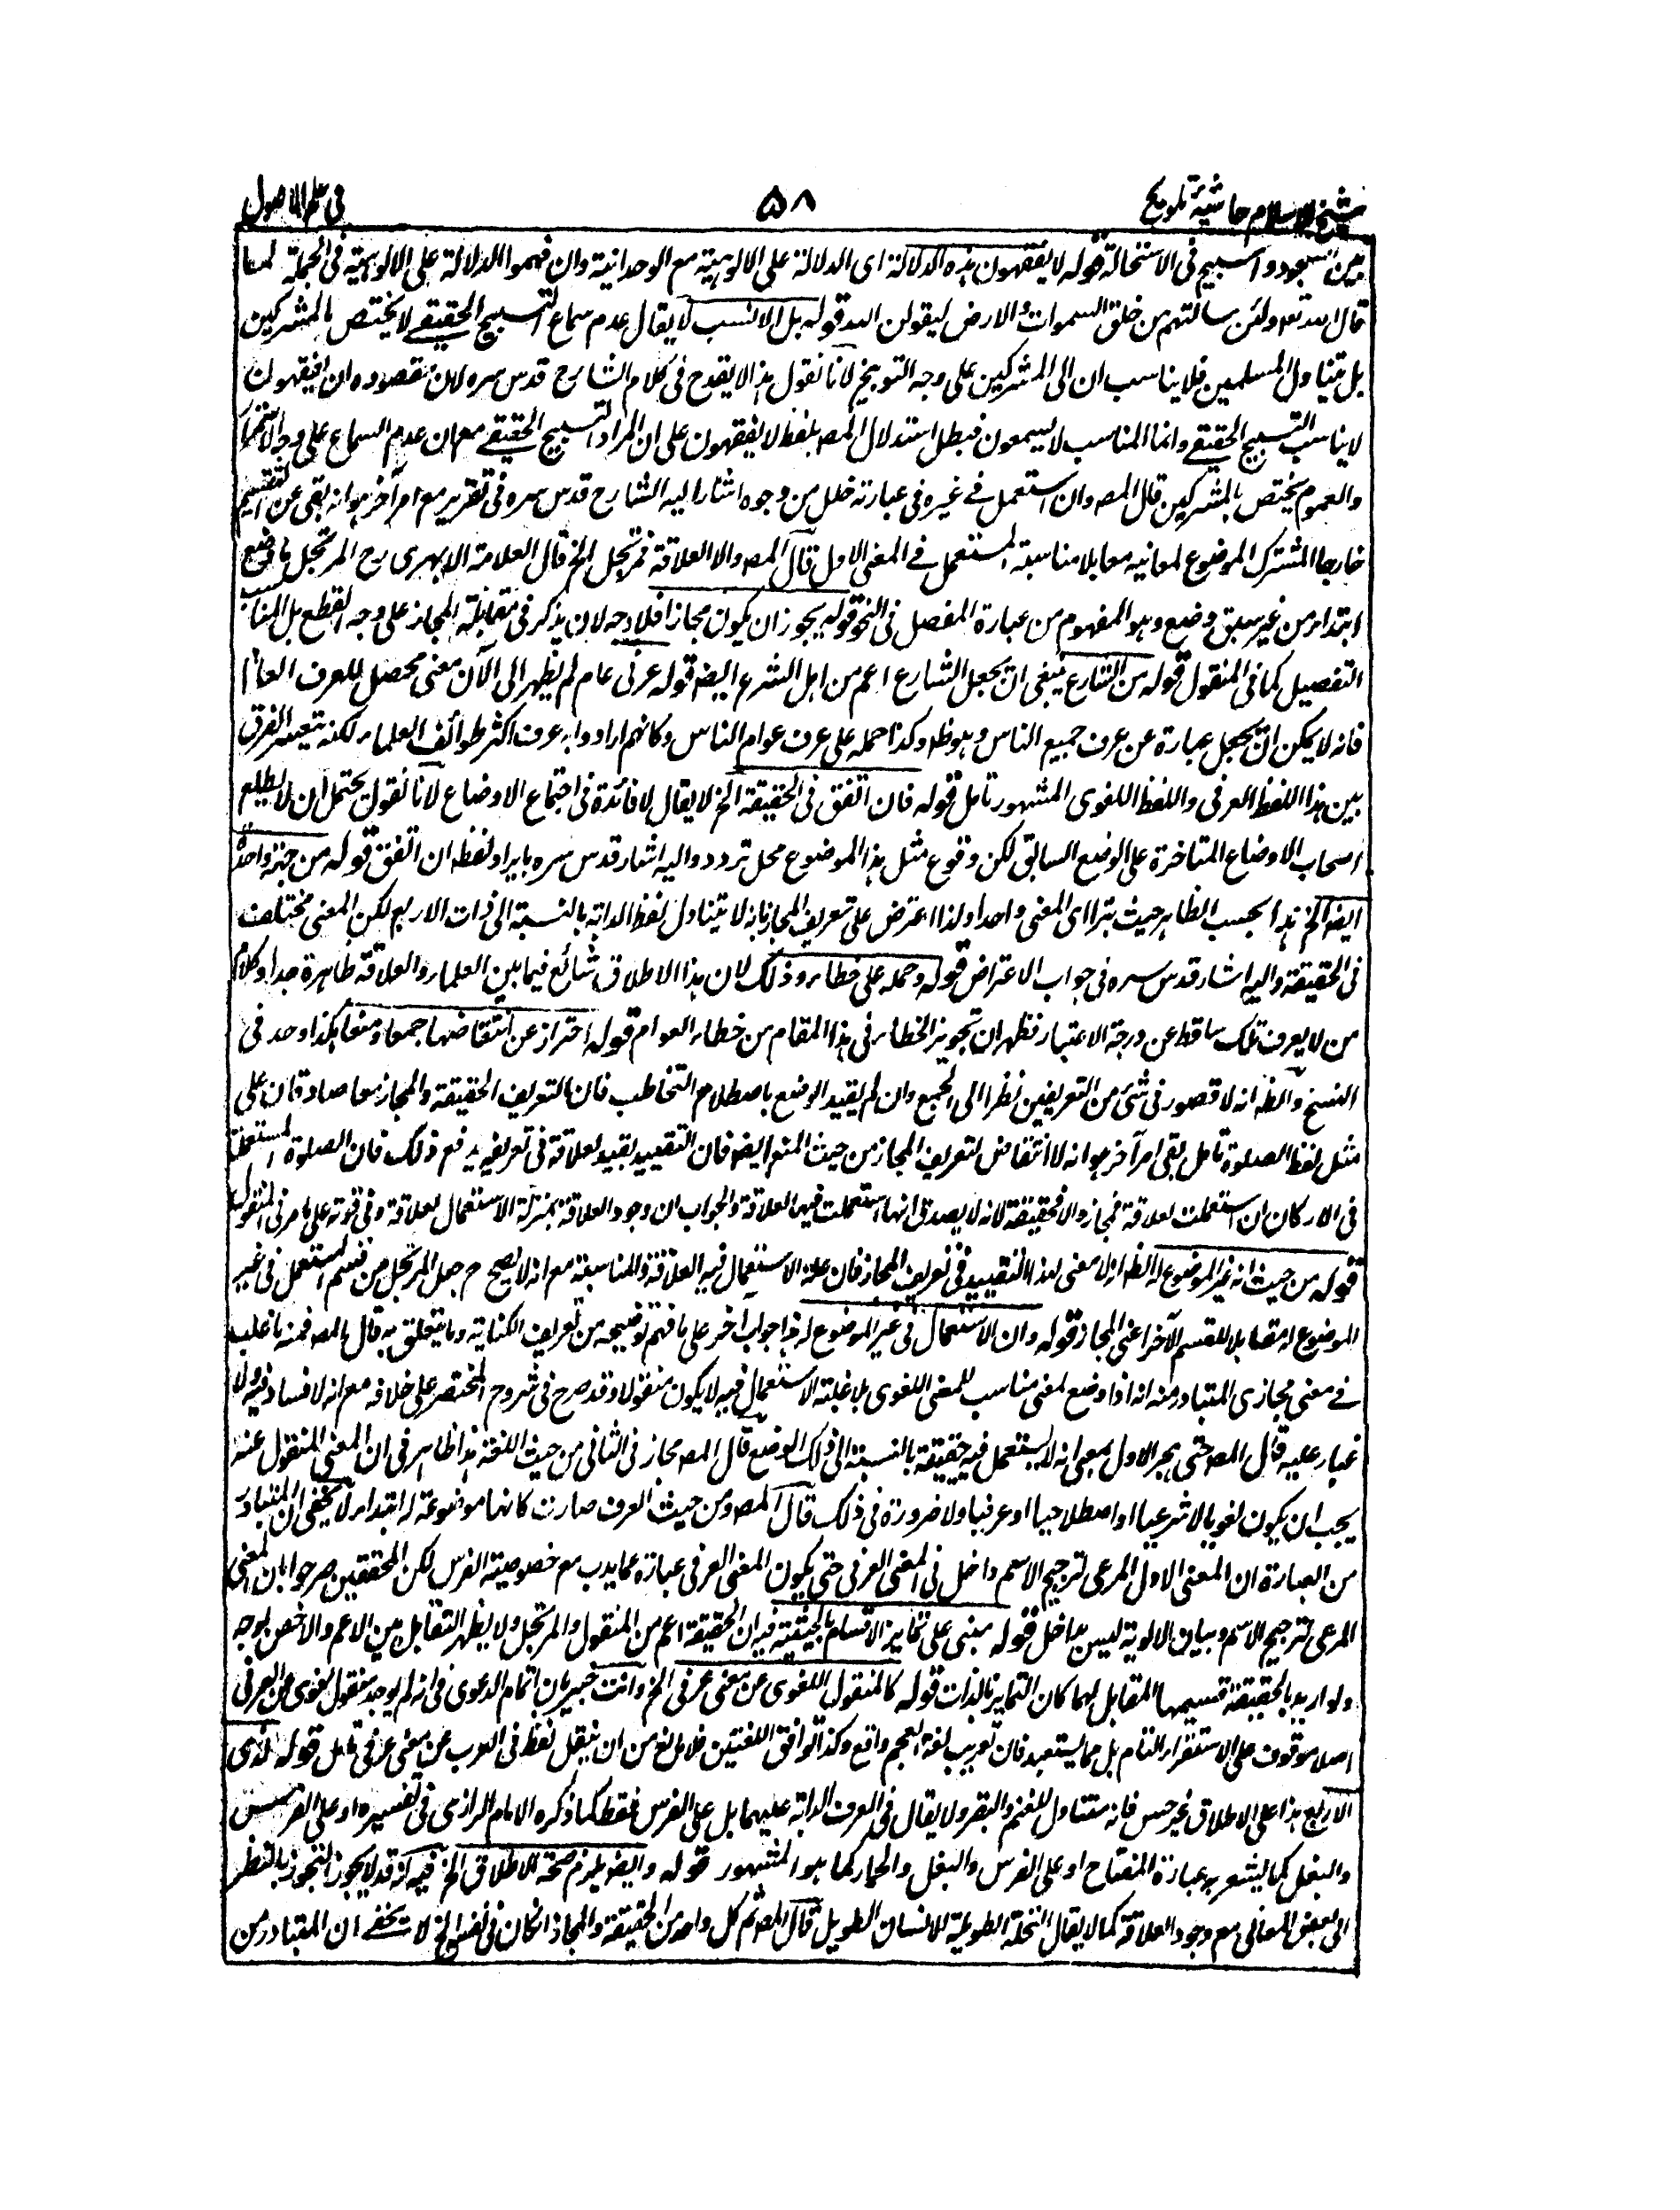 شيخ الاسلام حاشية تلويح ٥٨ فى علم الاصول
بين السجود والتسبيح فى الاستحالة قوله لا يفقهون هذه الدلالة اى الدلالة على الالوهية مع الوحدانية وان فهموا الدلالة على الالوهية فى الجملة لما
قال الله تعه ولئن سالتهم من خلق السموات والارض ليقولن الله قوله بل الانسب لا يقال عدم سماع التسبيح الحقيقے لا يختص بالمشركين
بل يتناول المسلمين فلا يناسب ان الى المشركين على وجه التوبيخ لانا نقول هذا لا يقدح فى كلام الشارح قدس سره لان مقصوده ان لا يفقهون
لا يناسب التسبيح الحقيقے وانما المناسب لا يسمعون فبطل استدلال المصه بلفظ لا يفقهون على ان المراد التسبيح الحقيقے مع ان عدم السماع على وجه الاستمرار
والعموم يختص بالمشركين قال المصه وان استعمل فے غيره فى عبارته خلل من وجوه اشار اليه الشارح قدس سره فى تقريره مع امر آخر هو انه بقى عن التقسيم
خارجا المشترك الموضوع لمعانيه معا بلا مناسبة المستعمل فے المعنى الاول قال المصه والا العلاقة فمرتجل الخ قال العلامة الابهرى رح المرتجل ما وضع
ابتداء من غير سبق وضع وهو المفهوم من عبارة المفصل فى النحو قوله يجوز ان يكون مجازا فلا وجه لان يذكر فى مقابلة المجاز على وجه القطع بل المناسب
التفصيل كما فى المنقول قوله من الشارع ينبغى ان يجعل الشارع اعم من اهل الشرع ايضه قوله عرفى عام لم يظهر الى الآن معنى محصل للعرف العام
فانه لا يمكن ان يجعل عبارة عن عرف جميع الناس وهو ظه وكذا حمله على عرف عوام الناس وكانهم ارادوا به عرف اكثر طوائف العلماء لكنه يتعسر الفرق
بين هذا اللفظ العرفى واللفظ اللغوى المشهور تامل قوله فان اتفق فى الحقيقة الخ لا يقال لا فائدة فى اجتماع الاوضاع لانا نقول يحتمل ان لا يطلع
اصحاب الاوضاع المتاخرة على الوضع السابق لكن وقوع مثل هذا الموضوع محل تردد واليه اشار قدس سره بايراد لفظه ان اتفق قوله من جهة واحدة
ايضه الخ هذا بحسب الظاهر حيث يتراى المعنى واحدا ولذا اعترض على تعريف المجاز بانه لا يتناول لفظ الدابة بالنسبة الى ذات الاربع لكن المعنى مختلف
فى الحقيقة واليه اشار قدس سره فى جواب الاعتراض قوله وحمله على خطاء وذلك لان هذا الاطلاق شائع فيما بين العلماء والعلاقة ظاهرة جدا وكلام
من لا يعرف تلك ساقط عن درجة الاعتبار فظهر ان تجويز الخطاء فى هذا المقام من خطاء العوام قوله احتراز عن انتقاضها جمعا ومنعا هكذا وجد فى
النسخ والظه انه لا قصور فى شئ من التعريفين نظرا الى الجمع وان لم يقيد الوضع باصطلاح التخاطب فان التعريف الحقيقة والمجاز معا صادقان على
مثل لفظ الصلوة تامل بقى امر آخر هو انه لا انتقاض لتعريف المجاز من حيث المنع ايضه فان التقييد بقيد لعلاقة فى تعريفه يدفع ذلك فان الصلوة المستعملة
فى الاركان ان استعملت لعلاقة فمجاز والا فحقيقة لانه لا يصدق انها استعملت فيها لعلاقة والجواب ان وجود العلاقة بمنزلة الاستعمال لعلاقة وفى قوته على ما مر فى المنقول
قوله من حيث انه غير الموضوع له الظه انه لا معنى لهذا التقييد فى تعريف المجاز فان علة الاستعمال فيه العلاقة والمناسبة مع انه لا يصح ح جعل المرتجل من قسم المستعمل فى غير
الموضوع له مقابلا للقسم الآخر اعنى المجاز قوله وان الاستعمال فى غير الموضوع له هذا جواب آخر على ما فهم توضيحه من تعريف الكناية وما يتعلق به قال المصه فمنه ما غلب
فے معنى مجازى المتبادر منه انه اذا وضع لمعنى مناسب للمعنى اللغوى بلا غلبة الاستعمال فيه لا يكون منقولا وقد صرح فى شروح المختصر على خلافه مع انه لا فساد فيه ولا
غبار عليه قال المصه حتى يهجر الاول بمعنى انه لا يستعمل فيه حقيقة بالنسبة الى ذلك الوضع قال المصه مجاز فى الثانى من حيث اللغة هذا ظاهر فى ان المعنى المنقول عنه
يجب ان يكون لغويا لا شرعيا او اصطلاحيا او عرفيا ولا ضرورة فى ذلك قال المصه ومن حيث العرف صارت كانها موضوعة له ابتداء لا يخفى ان المتبادر
من العبارة ان المعنى الاول المرعى لترجيح الاسم داخل فى المعنى العرفى حتى يكون المعنى العرفى عبارة عما يدب مع خصوصية الفرس لكن المحققين صرحوا بان المعنى
المرعى لترجيح الاسم وبيان الالوية ليس بداخل قوله مبنى على تمايز الاقسام بالحيثية فيه ان الحقيقة اعم من المنقول والمرتجل ولا يظهر التقابل بين الاعم والاخص بوجه
ولو اريد بالحقيقة قسيمها المقابل لهما كان التمايز بالذات قوله كالمنقول اللغوى من معنى عرفى الخ وانت خبير بان اتمام الدعوى فى انه لم يوجد منقول لغوى من العرفى
اصلا موقوف على الاستقراء التام بل مما يستبعد فان تعريب لغة العجم واقع وكذا توافق اللغتين فلا مانع من ان ينقل لفظ فى العرب من معنى عرفى تامل قوله لذى
الاربع هذا على الاطلاق غير حسن فانه متناول للغنم والبقر ولا يقال فى العرف الدابة عليهما بل على الفرس فقط كما ذكره الامام الرازى فى تفسيره او على الفرس
والبغل كما يشعر به عبارة المفتاح او على الفرس والبغل والحمار كما هو المشهور قوله وايضه يلزم صحة الاطلاق الخ فيه انه قد لا يجوز التجوز بالنظر
الى بعض المعانى مع وجود العلاقة كما لا يقال النخلة الطويلة للانسان الطويل قال المصه ثم كل واحد من الحقيقة والمجاز ان كان فى نفس الخ لا يخفے ان المتبادر من